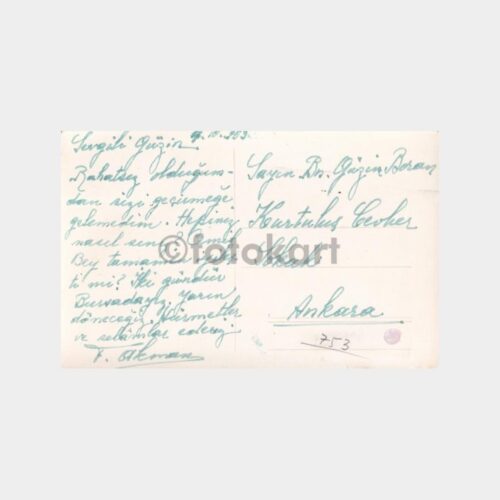 Sevgili Güzin
Rahatsız olduğum-
dan sizi geçirmeğe
gelemedim. Hepiniz
nasılsınız
Bey tamam
ti mi? İki gündür
Bursadayız, yarın
döneceğiz. Hürmetler
ve selâmlar ederiz
F. Akman
Sayın Bn. Güzin Boran
Kurtuluş Cevher
Ankara
753
©fotokart